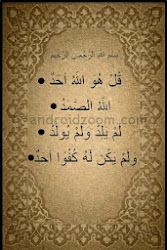 بسم الله الرحمن الرحيم
• قُلْ هُوَ اللهُ أَحَدٌ
• اللهُ الصَّمَدُ
• لَمْ يَلِدْ وَلَمْ يُولَدْ
• وَلَمْ يَكُن لَهُ كُفُوًا أَحَدٌ
androidzoom.com